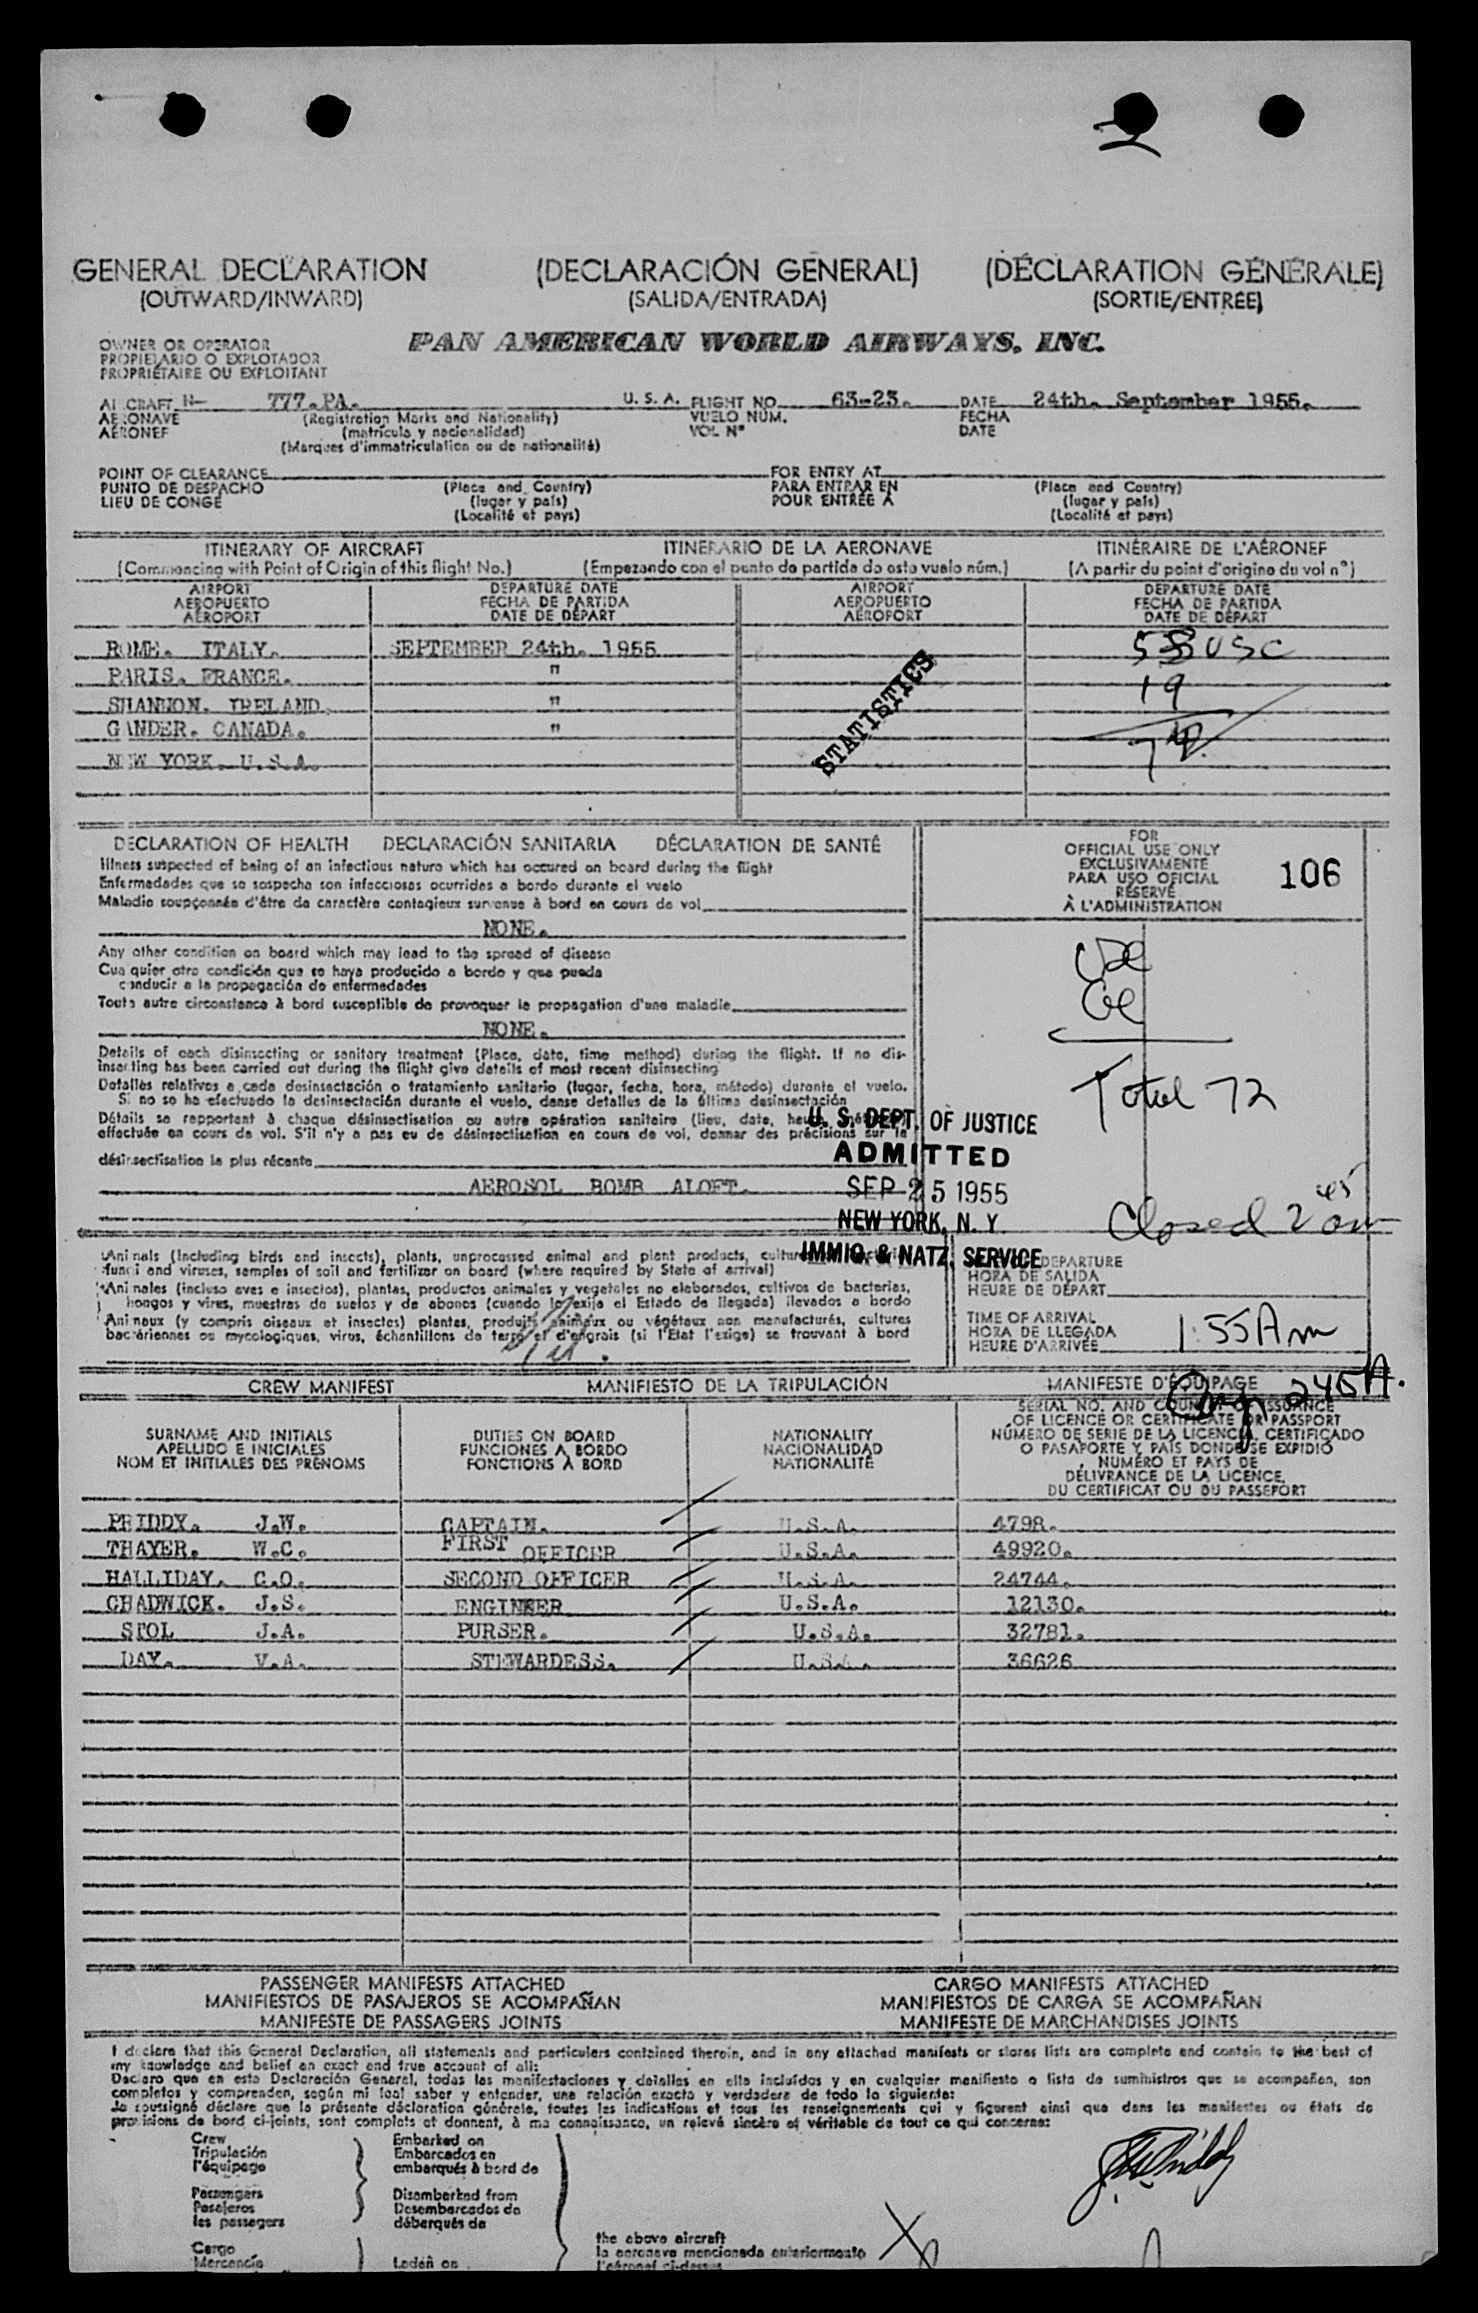 GENERAL DECLARATION (DECLARACIÓN GENERAL) (DÉCLARATION GÉNÉRALE)
(OUTWARD/INWARD) (SALIDA/ENTRADA) (SORTIE/ENTRÉE)
OWNER OR OPERATOR
PROPIETARIO O EXPLOTADOR
PROPRIÉTAIRE OU EXPLOITANT
PAN AMERICAN WORLD AIRWAYS, INC.
AIRCRAFT N- 777.PA. U. S. A. FLIGHT NO. 63-23. DATE 24th. September 1955.
AERONAVE (Registration Marks and Nationality) VUELO NÚM. FECHA
AÉRONEF (matrícula y nacionalidad) VOL Nº DATE
(Marques d'immatriculation ou de nationalité)
POINT OF CLEARANCE FOR ENTRY AT
PUNTO DE DESPACHO (Place and Country) PARA ENTRAR EN (Place and Country)
LIEU DE CONGÉ (lugar y país) POUR ENTRÉE À (lugar y país)
(Localité et pays) (Localité et pays)
ITINERARY OF AIRCRAFT ITINERARIO DE LA AERONAVE ITINÉRAIRE DE L'AÉRONEF
(Commencing with Point of Origin of this flight No.) (Empezando con el punto de partida de este vuelo núm.) (A partir du point d'origine du vol nº)
AIRPORT DEPARTURE DATE AIRPORT DEPARTURE DATE
AEROPUERTO FECHA DE PARTIDA AEROPUERTO FECHA DE PARTIDA
AÉROPORT DATE DE DÉPART AÉROPORT DATE DE DÉPART
ROME. ITALY. SEPTEMBER 24th. 1955 53 USC
PARIS. FRANCE. " 19
SHANNON. IRELAND. "
GANDER. CANADA. "
NEW YORK. U.S.A.
STATISTICS
DECLARATION OF HEALTH DECLARACIÓN SANITARIA DÉCLARATION DE SANTÉ
Illness suspected of being of an infectious nature which has occured on board during the flight
Enfermedades que se sospecha son infecciosas ocurridas a bordo durante el vuelo
Maladie soupçonnée d'être de caractère contagieux survenue à bord en cours de vol
NONE.
FOR
OFFICIAL USE ONLY
EXCLUSIVAMENTE
PARA USO OFICIAL
RÉSERVÉ
À L'ADMINISTRATION
106
Any other condition on board which may lead to the spread of disease
Cualquier otra condición que se haya producido a bordo y que pueda
conducir a la propagación de enfermedades
Toute autre circonstance à bord susceptible de provoquer la propagation d'une maladie
NONE.
Details of each disinsecting or sanitary treatment (Place, date, time method) during the flight. If no dis-
insecting has been carried out during the flight give details of most recent disinsecting
Detalles relativos a cada desinsectación o tratamiento sanitario (lugar, fecha, hora, método) durante el vuelo.
Si no se ha efectuado la desinsectación durante el vuelo, dense detalles de la última desinsectación
Détails se rapportant à chaque désinsectisation ou autre opération sanitaire (lieu, date, heure, méthode)
effectuée en cours de vol. S'il n'y a pas eu de désinsectisation en cours de vol, donner des précisions sur la
désinsectisation la plus récente
AEROSOL BOMB ALOFT.
Total 72
Closed 2 45 am
U. S. DEPT. OF JUSTICE
ADMITTED
SEP 25 1955
NEW YORK, N. Y.
IMMIG. & NATZ. SERVICE
Animals (Including birds and insects), plants, unprocessed animal and plant products, cultures
fungi and viruses, samples of soil and fertilizer on board (where required by State of arrival)
Animales (incluso aves e insectos), plantas, productos animales y vegetales no elaborados, cultivos de bacterias,
hongos y virus, muestras de suelos y de abonos (cuando lo exija el Estado de llegada) llevados a bordo
Animaux (y compris oiseaux et insectes) plantes, produits animaux ou végétaux non manufacturés, cultures
bactériennes ou mycologiques, virus, échantillons de terre et d'engrais (si l'Etat l'exige) se trouvant à bord
Nil.
DEPARTURE
HORA DE SALIDA
HEURE DE DÉPART
TIME OF ARRIVAL
HORA DE LLEGADA
HEURE D'ARRIVÉE
1:55 Am
245 A.
CREW MANIFEST MANIFIESTO DE LA TRIPULACIÓN MANIFESTE D'ÉQUIPAGE
SURNAME AND INITIALS DUTIES ON BOARD NATIONALITY
APELLIDO E INICIALES FUNCIONES A BORDO NACIONALIDAD
NOM ET INITIALES DES PRÉNOMS FONCTIONS À BORD NATIONALITÉ
SERIAL NO. AND COUNTRY OF ISSUANCE
OF LICENCE OR CERTIFICATE OR PASSPORT
NÚMERO DE SERIE DE LA LICENCIA, CERTIFICADO
O PASAPORTE Y PAÍS DONDE SE EXPIDIÓ
NUMÉRO ET PAYS DE
DÉLIVRANCE DE LA LICENCE,
DU CERTIFICAT OU DU PASSEPORT
PRIDDY. J.W. CAPTAIN. U.S.A. 4798.
THAYER. W.C. FIRST OFFICER U.S.A. 49920.
HALLIDAY. C.O. SECOND OFFICER U.S.A. 24744.
CHADWICK. J.S. ENGINEER U.S.A. 12130.
STOL J.A. PURSER. U.S.A. 32781.
DAY. V.A. STEWARDESS. U.S.A. 36626
PASSENGER MANIFESTS ATTACHED CARGO MANIFESTS ATTACHED
MANIFIESTOS DE PASAJEROS SE ACOMPAÑAN MANIFIESTOS DE CARGA SE ACOMPAÑAN
MANIFESTE DE PASSAGERS JOINTS MANIFESTE DE MARCHANDISES JOINTS
I declare that this General Declaration, all statements and particulars contained therein, and in any attached manifests or stores lists are complete and contain to the best of
my knowledge and belief an exact and true account of all:
Declaro que en esta Declaración General, todas las manifestaciones y detalles en ella incluidos y en cualquier manifiesto o lista de suministros que se acompañan, son
completos y comprenden, según mi leal saber y entender, una relación exacta y verdadera de todo lo siguiente:
Je soussigné déclare que la présente déclaration générale, toutes les indications et tous les renseignements qui y figurent ainsi que dans les manifestes ou états de
provisions de bord ci-joints, sont complets et donnent, à ma connaissance, un relevé sincère et véritable de tout ce qui concerne:
Crew Embarked on
Tripulación Embarcados en
l'équipage embarqués à bord de
Passengers Disembarked from
Pasajeros Desembarcados de
les passagers débarqués de
the above aircraft
Cargo la aeronave mencionada anteriormente
Mercancía Laden on l'aéronef ci-dessus
JWPriddy